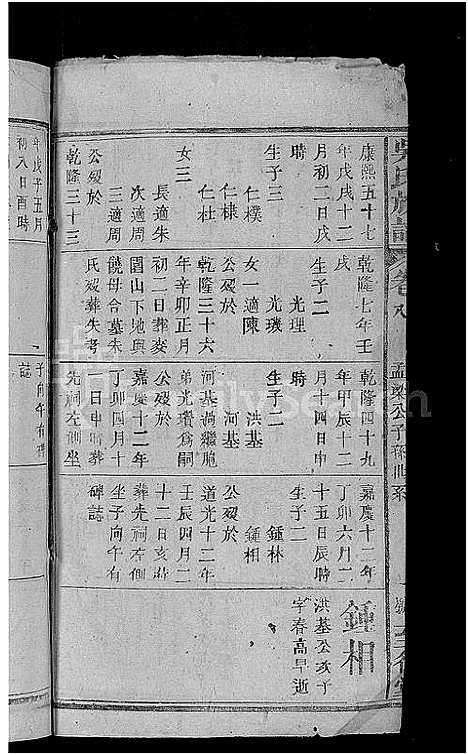 吳氏族譜
卷八
孟梁公子孫世系
康熙五十七
年戊戌十二
月初二日戌
時
生子三
仁樸
仁棣
仁杜
女三
長適朱
次適周
三適周
公歿於
乾隆三十三
乾隆七年壬
戌
生子二
光理
光璣
女一適陳
公歿於
乾隆三十六
年辛卯正月
初二日葬麥
園山下地與
饒母合墓朱
氏歿葬失考
乾隆四十九
年甲辰十二
月十四日申
時
生子二
洪基
河基
河基過繼胞
弟光瓚為嗣
公歿於
嘉慶十二年
丁卯四月十
日申時葬
先祠左側坐
嘉慶十二年
丁卯六月二
十五日辰時
生子二
鍾林
鍾相
公歿於
道光十二年
壬辰四月二
十二日亥時
葬先祠右側
坐子向午有
碑誌
鍾相
洪基公次子
字春高早逝
年戊子五月
初八日酉時
子向午有碑
誌